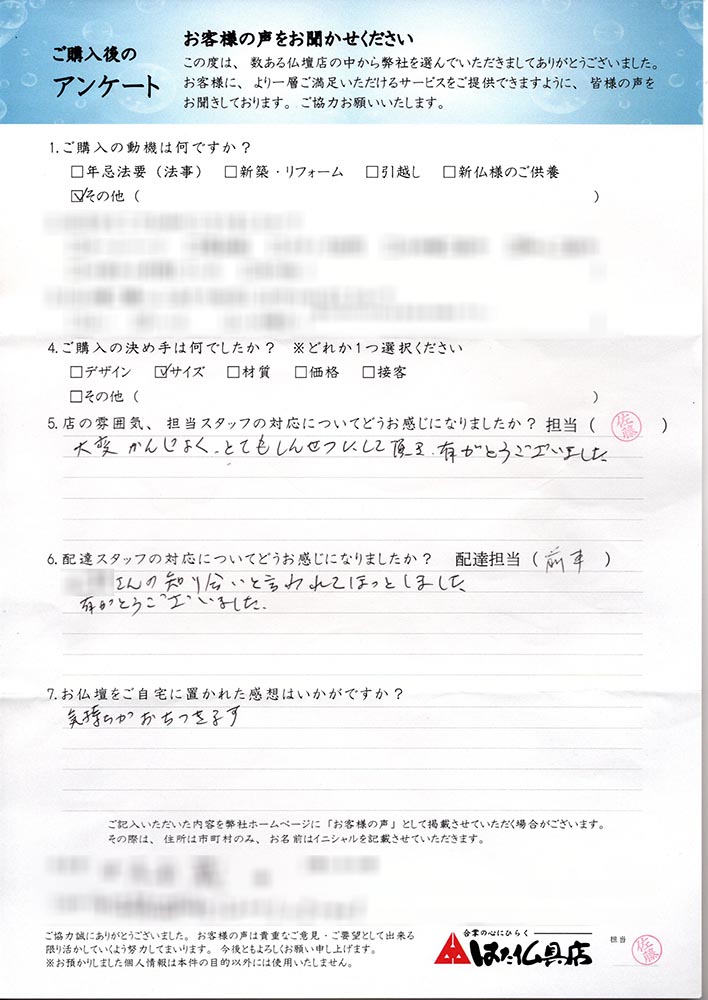 ご購入後の
アンケート
お客様の声をお聞かせください
この度は、数ある仏壇店の中から弊社を選んでいただきましてありがとうございました。
お客様に、より一層ご満足いただけるサービスをご提供できますように、皆様の声を
お聞きしております。ご協力お願いいたします。
1.ご購入の動機は何ですか？
□年忌法要（法事） □新築・リフォーム □引越し □新仏様のご供養
☑その他（ ）
4.ご購入の決め手は何でしたか？ ※どれか1つ選択ください
□デザイン ☑サイズ □材質 □価格 □接客
□その他（ ）
5.店の雰囲気、担当スタッフの対応についてどうお感じになりましたか？ 担当（ 佐藤 ）
大変かんじよく、とてもしんせつにして頂き、有がとうございました
6.配達スタッフの対応についてどうお感じになりましたか？ 配達担当（ ）
さんの知り合いと言われてほっとしました
有がとうございました.
7.お仏壇をご自宅に置かれた感想はいかがですか？
気持ちがおちつきます
ご記入いただいた内容を弊社ホームページに「お客様の声」として掲載させていただく場合がございます。
その際は、住所は市町村のみ、お名前はイニシャルを記載させていただきます。
ご協力誠にありがとうございました。お客様の声は貴重なご意見・ご要望として出来る
限り活かしていくよう努力してまいります。今後ともよろしくお願い申し上げます。
※お預かりしました個人情報は本件の目的以外には使用いたしません。
合掌の心にひらく
はた仏具店
担当
佐藤